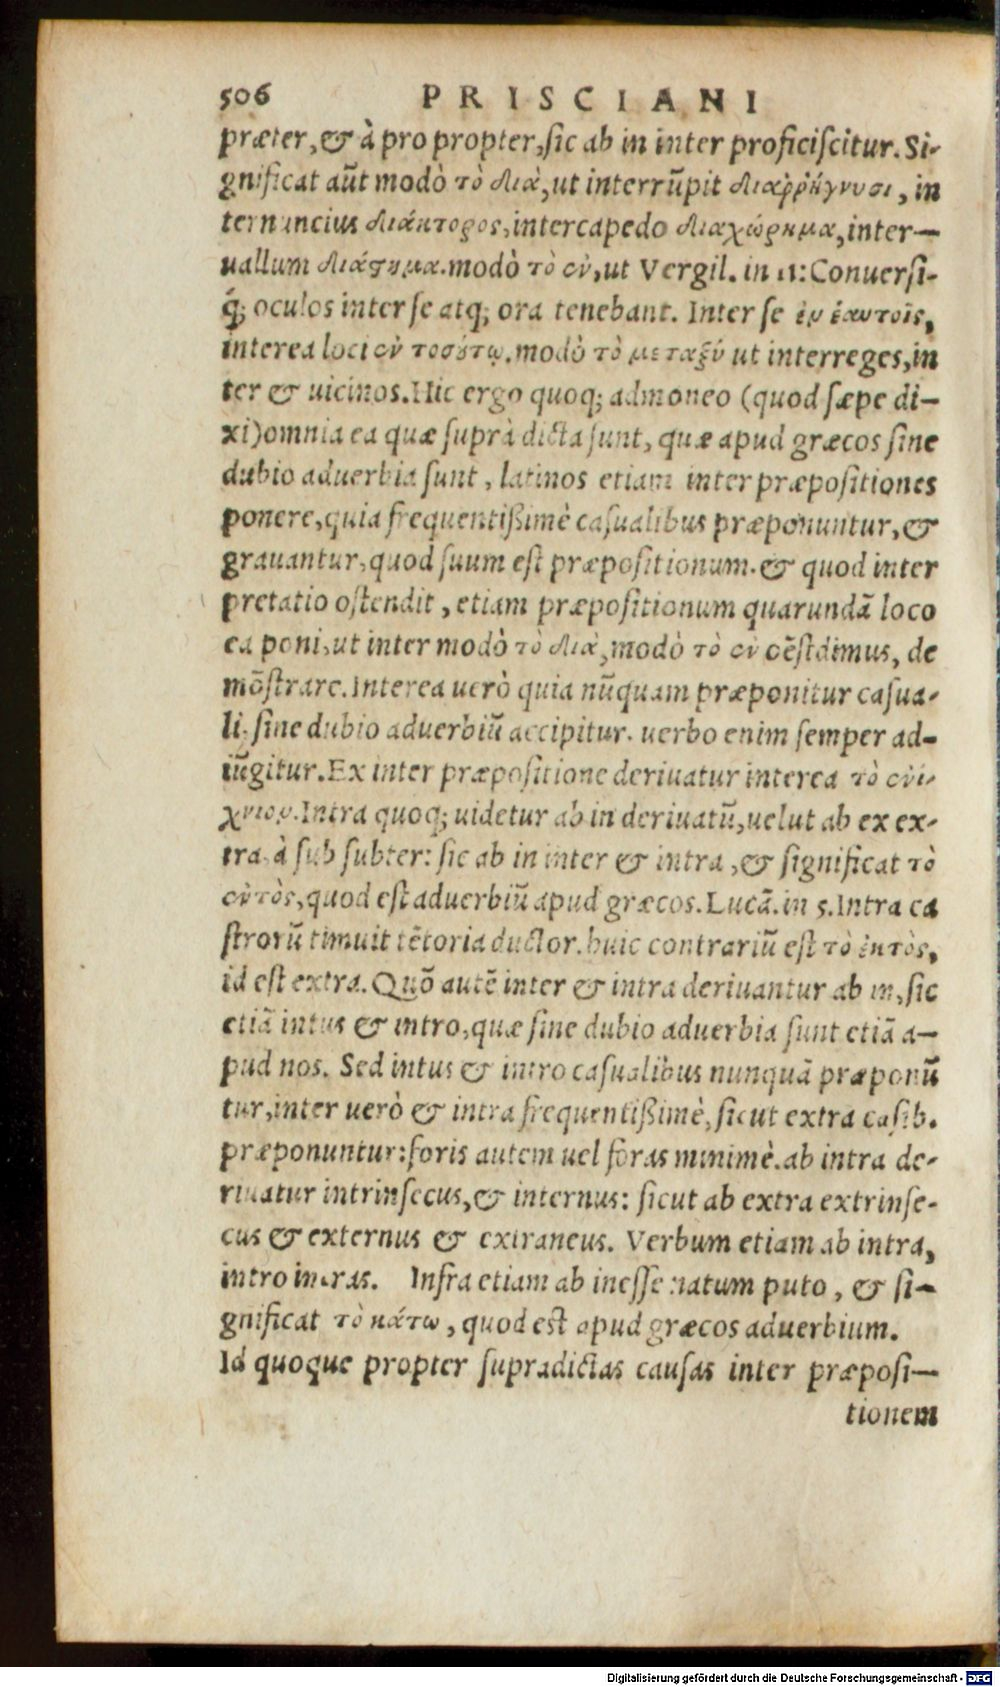 506 PRISCIANI
præter, & à pro propter, sic ab in inter proficiscitur. Si-
gnificat aūt modò τὸ διὰ, ut interrūpit διαῤῥήγνυσι, in
ternuncius διάκτορος, intercapedo διαχώρημα, inter-
uallum διάστημα. modò τὸ ἐν, ut Vergil. in 11: Conuersi-
q́; oculos inter se atq; ora tenebant. Inter se ἐν ἑαυτοῖς,
interea loci ἐν τοσούτῳ. modò τὸ μεταξύ ut interreges, in
ter & uicinos. Hic ergo quoq; admoneo (quod sæpe di-
xi) omnia ea quæ suprà dicta sunt, quæ apud græcos sine
dubio aduerbia sunt, latinos etiam inter præpositiones
ponere, quia frequentißimè casualibus præponuntur, &
grauantur, quod suum est præpositionum. & quod inter
pretatio ostendit, etiam præpositionum quarundā loco
ea poni, ut inter modò τὸ διὰ, modò τὸ ἐν dimus, de
mōstrare. Interea uerò quia nūquam præponitur casua-
li, sine dubio aduerbiū accipitur. uerbo enim semper ad-
iūgitur. Ex inter præpositione deriuatur interea τὸ ἐνί-
χνιον. Intra quoq; uidetur ab in deriuatū, uelut ab ex ex-
tra, à sub subter: sic ab in inter & intra, & significat τὸ
ἐντὸς, quod est aduerbiū apud græcos. Lucā. in 5. Intra ca
strorū timuit tētoria ductor. huic contrariū est τὸ ἐκτὸς,
id est extra. Quō autē inter & intra deriuantur ab in, sic
etiā intus & intro, quæ sine dubio aduerbia sunt etiā a-
pud nos. Sed intus & intro casualibus nunquā præponū
tur, inter uerò & intra frequentißimè, sicut extra casib.
præponuntur: foris autem uel foras minimè. ab intra de-
riuatur intrinsecus, & internus: sicut ab extra extrinse-
cus & externus & extraneus. Verbum etiam ab intra,
intro intras. Infra etiam ab in esse natum puto, & si-
gnificat τὸ κάτω, quod est apud græcos aduerbium.
Id quoque propter supradictas causas inter præposi-
tionem
Digitalisierung gefördert durch die Deutsche Forschungsgemeinschaft - DFG